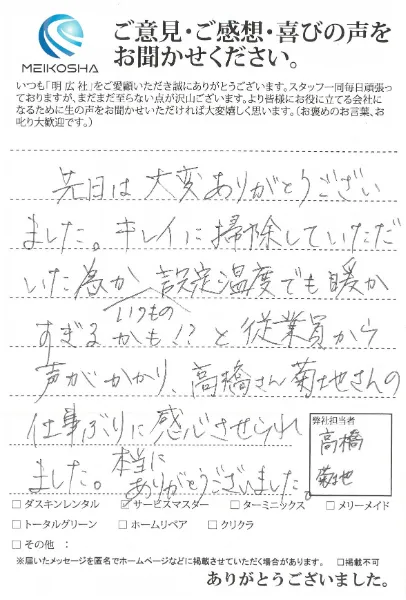 MEIKOSHA
ご意見・ご感想・喜びの声を
お聞かせください。
いつも「明広社」をご愛顧いただき誠にありがとうございます。スタッフ一同毎日頑張っ
ておりますが、まだまだ至らない点が沢山ございます。より皆様にお役に立てる会社に
なるために生の声をお聞かせいただければ大変嬉しく思います。（お褒めのお言葉、お
叱り大歓迎です。）
先日は大変ありがとうござい
ました。キレイに掃除していただ
いた為かいつもの設定温度でも暖か
すぎるかも!?と従業員から
声がかかり、高橋さん菊地さんの
仕事ぶりに感心させられ
ました。本当にありがとうございました。
弊社担当者
高橋
菊地
□ダスキンレンタル ☑サービスマスター □ターミニックス □メリーメイド
□トータルグリーン □ホームリペア □クリクラ
□その他 :
※届いたメッセージを匿名でホームページなどに掲載させていただく場合があります。 □掲載不可
ありがとうございました。